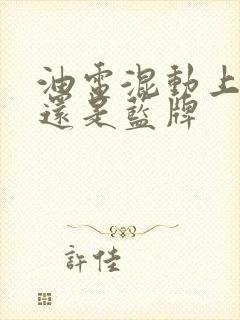 油電混動上
還是藍牌
許佳